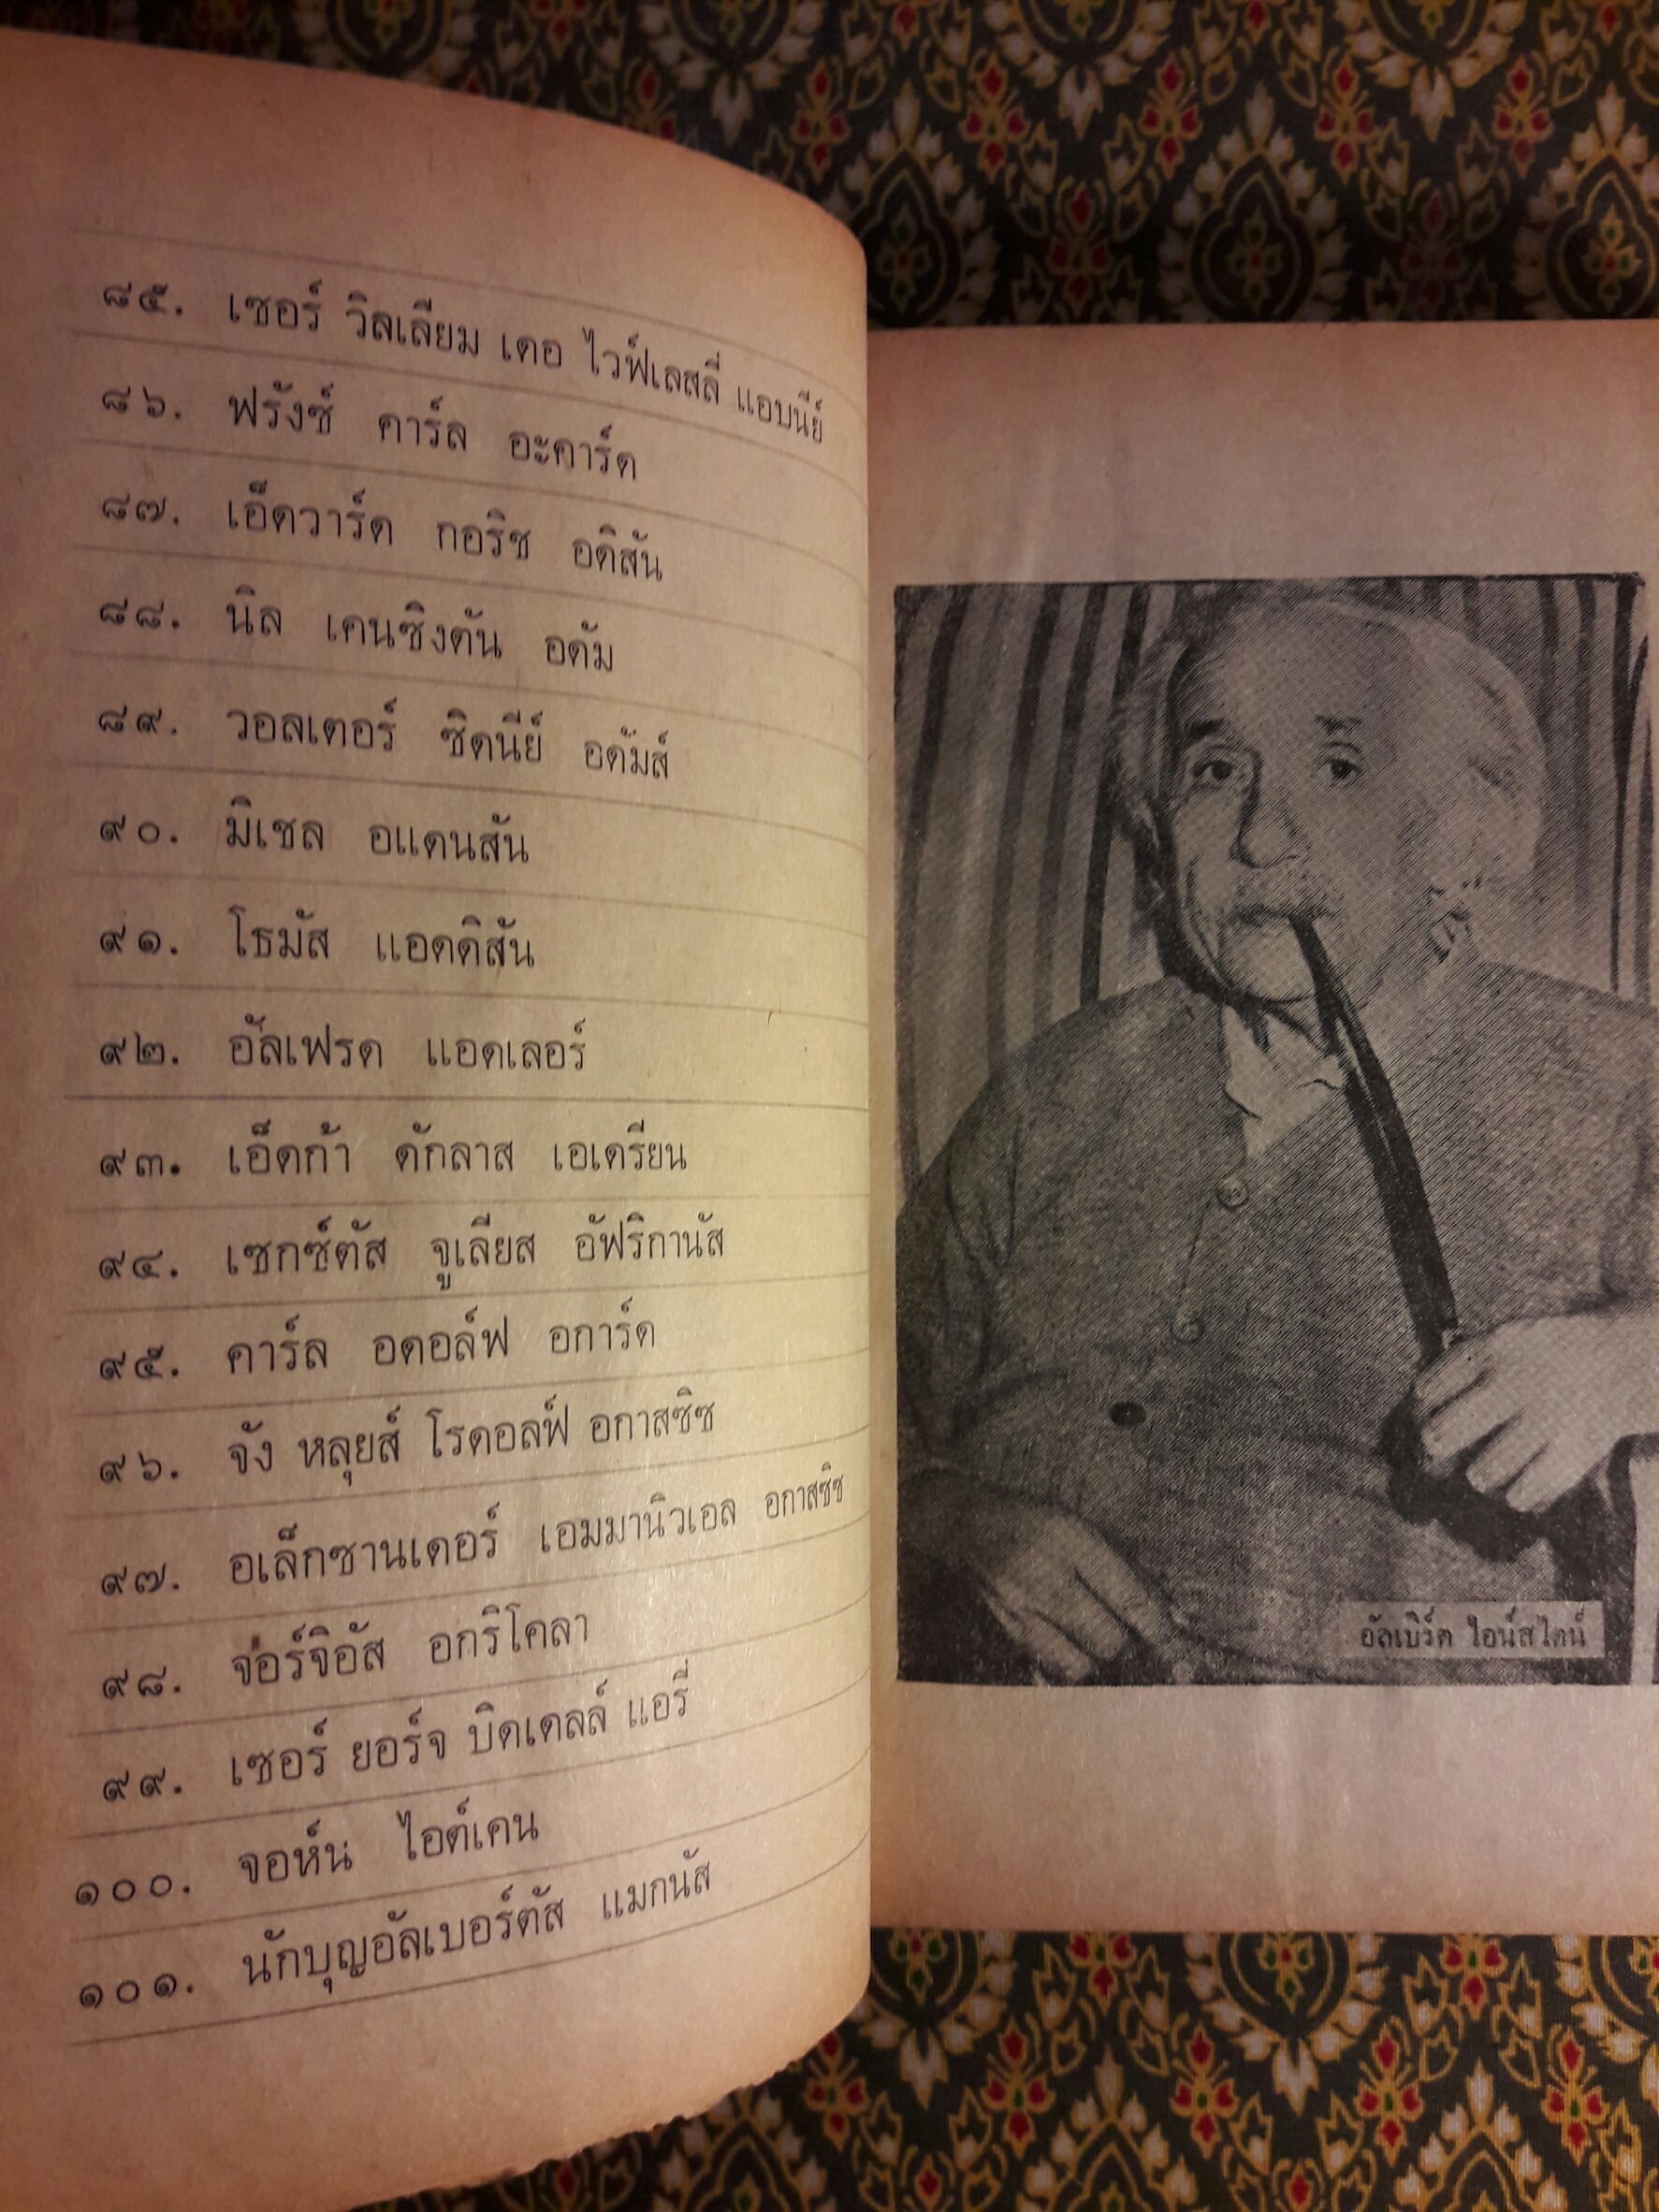 ๘๕. เซอร์ วิลเลียม เดอ ไวฟ์เลสลี่ แอบนีย์
๘๖. ฟรังซ์ คาร์ล อะคาร์ด
๘๗. เอ็ดวาร์ด กอริช อดิสัน
๘๘. นิล เคนซิงตัน อดัม
๘๙. วอลเตอร์ ซิดนีย์ อดัมส์
๙๐. มิเชล อแดนสัน
๙๑. โธมัส แอดดิสัน
๙๒. อัลเฟรด แอดเลอร์
๙๓. เอ็ดก้า ดักลาส เอเดรียน
๙๔. เซกซ์ตัส จูเลียส อัฟริกานัส
๙๕. คาร์ล อดอล์ฟ อการ์ด
๙๖. จัง หลุยส์ โรดอลฟ์ อกาสซิซ
๙๗. อเล็กซานเดอร์ เอมมานิวเอล อกาสซิซ
๙๘. จ่อร์จิอัส อกริโคลา
๙๙. เซอร์ ยอร์จ บิดเดลล์ แอรี่
๑๐๐. จอห์น ไอต์เคน
๑๐๑. นักบุญอัลเบอร์ตัส แมกนัส
อัลเบิร์ต ไอน์สไตน์